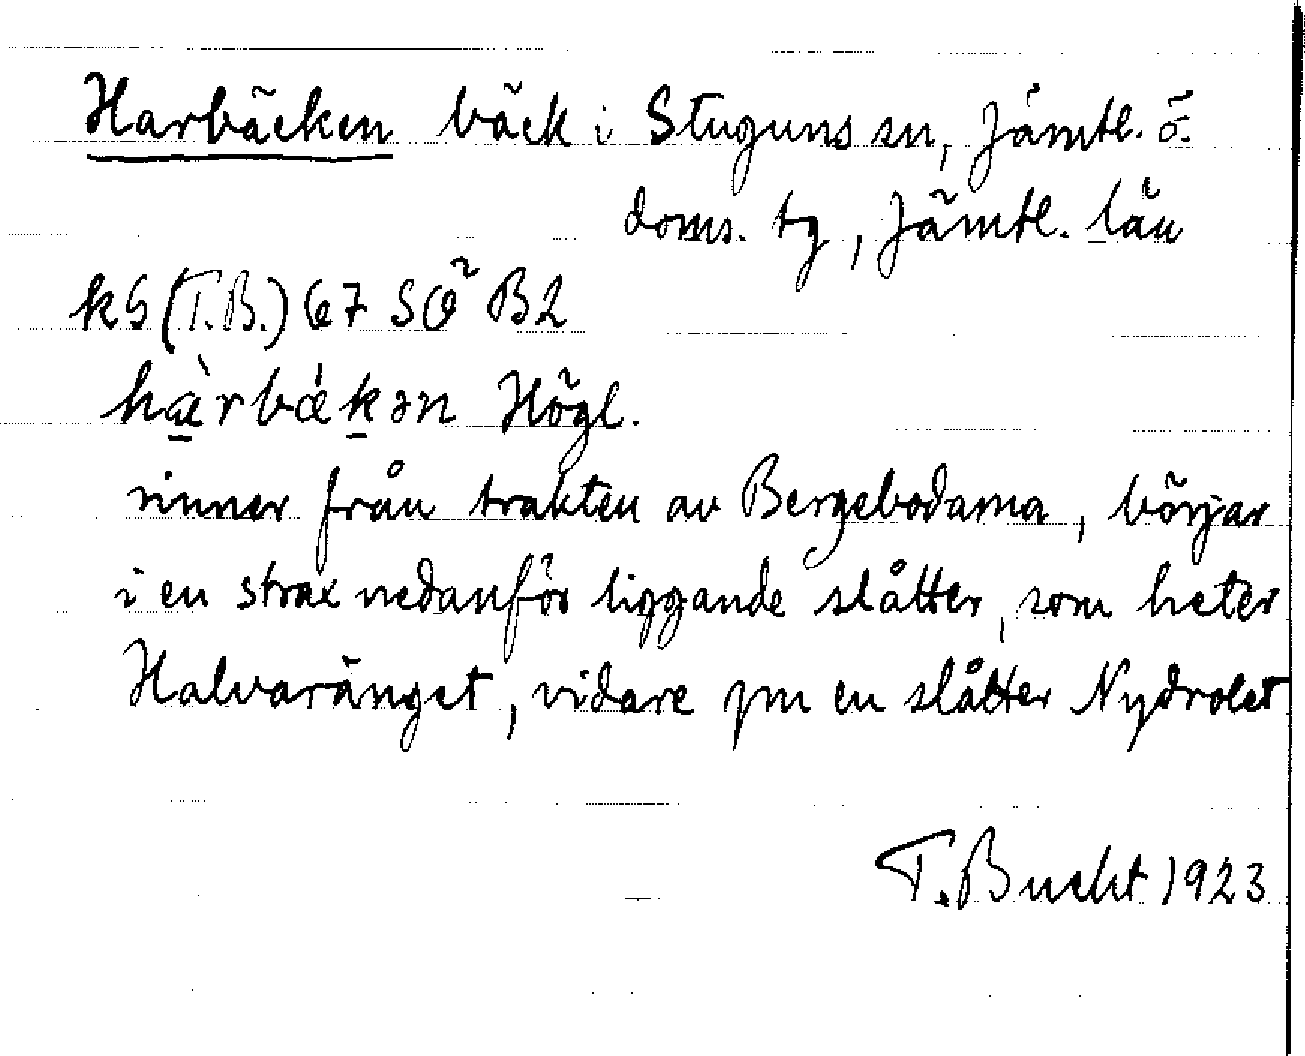 Harbäcken bäck i Stuguns sn, Jämtl. ö.
doms. tg, Jämtl. län
kS (T.B.) 67 SÖ B2
hà̱rbǽḵən Högl.
rinner från trakten av Bergebodarna, börjar
i en strax nedanför liggande slåtter, som heter
Halvaränget, vidare gm en slåtter Nydrolet
T. Bucht 1923